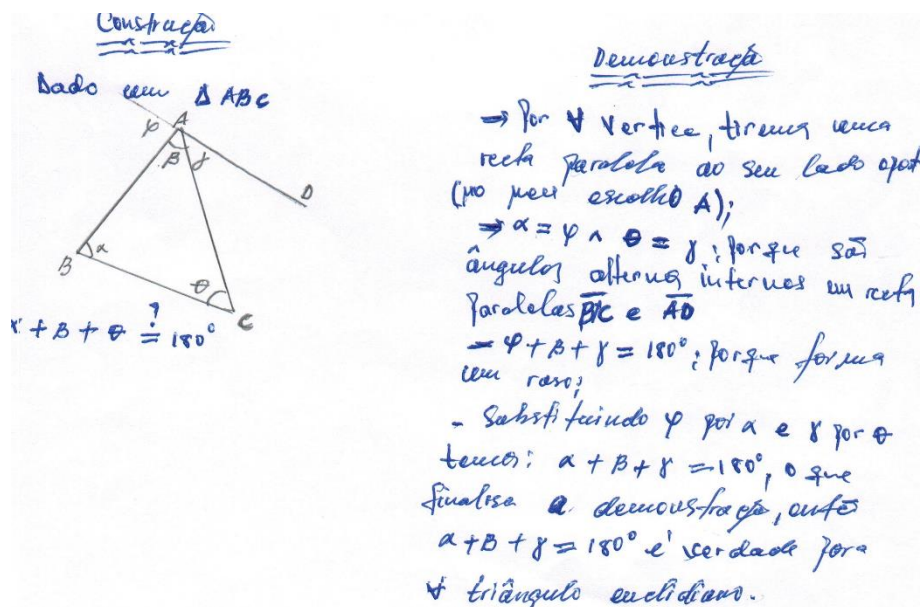 Construção
Dado um Δ ABC
φ A
β γ
D
B α
θ
C
α + β + θ ≟ 180°
Demonstração
→ Por ∀ vertice, tiremos uma
recta paralela ao seu lado opost
(no meu escolho A);
→ α = φ ∧ θ = γ; porque são
ângulos alternos internos em recta
Paralelas BC e AD
- φ + β + γ = 180°; porque forma
um raso;
- Substituindo φ por α e γ por θ
temos: α + β + γ = 180°, o que
finalisa a demonstração, então
α + β + γ = 180° é verdade para
∀ triângulo euclidiano.